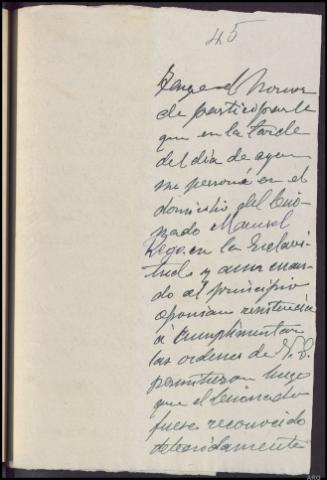 45
Tengo el honor
de participarle
que en la tarde
del dia de ayer
me personé en el
domicilio del
Manuel
Rego en la Esclavi
tud y aun cuan
do al principio
oponian resistencia
á cumplimentar
las ordenes de V. S.
permitieron luego
que el
fuese reconocido
detenidamente
ARG